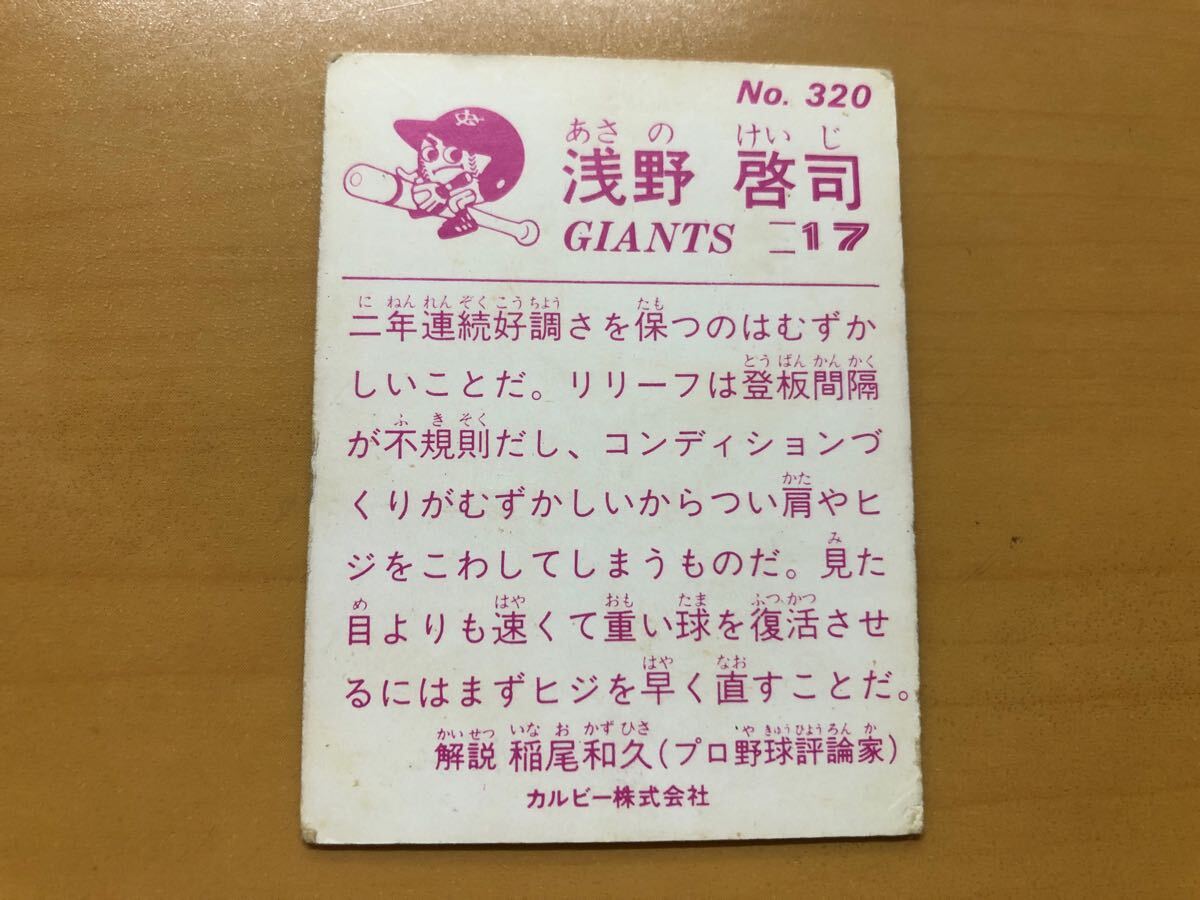 No. 320
あさの けいじ
浅野 啓司
GIANTS 17
に ねん れん ぞく こう ちょう たも
二年連続好調さを保つのはむずか
とう ばん かん かく
しいことだ。リリーフは登板間隔
ふ き そく
が不規則だし、コンディションづ
かた
くりがむずかしいからつい肩やヒ
み
ジをこわしてしまうものだ。見た
め はや おも たま ふつ かつ
目よりも速くて重い球を復活させ
はや なお
るにはまずヒジを早く直すことだ。
かい せつ いな お かず ひさ や きゅう ひょう ろん か
解説 稲尾和久(プロ野球評論家)
カルビー株式会社